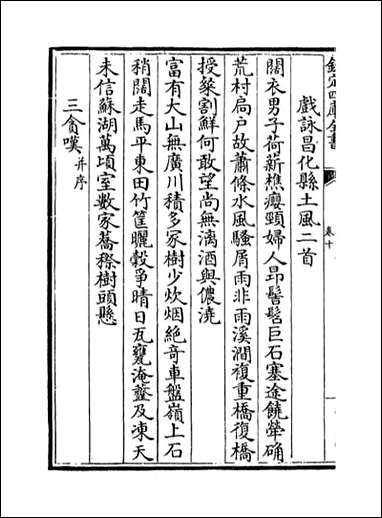 欽定四庫全書
卷十
戲詠昌化縣土風二首
闊衣男子荷薪樵癭頸婦人昂髻髫巨石塞途饒犖确
荒村扃户故蕭條水風騷屑雨非雨溪澗複重橋復橋
授粲割鮮何敢望尚無漓酒與儂澆
富有大山無廣川積多冢樹少炊烟絶奇車盤嶺上石
稍闊走馬平東田竹筐曬榖爭晴日瓦甕淹虀及凍天
未信蘇湖萬頃室數家蕎穄樹頭懸
三貪嘆并序